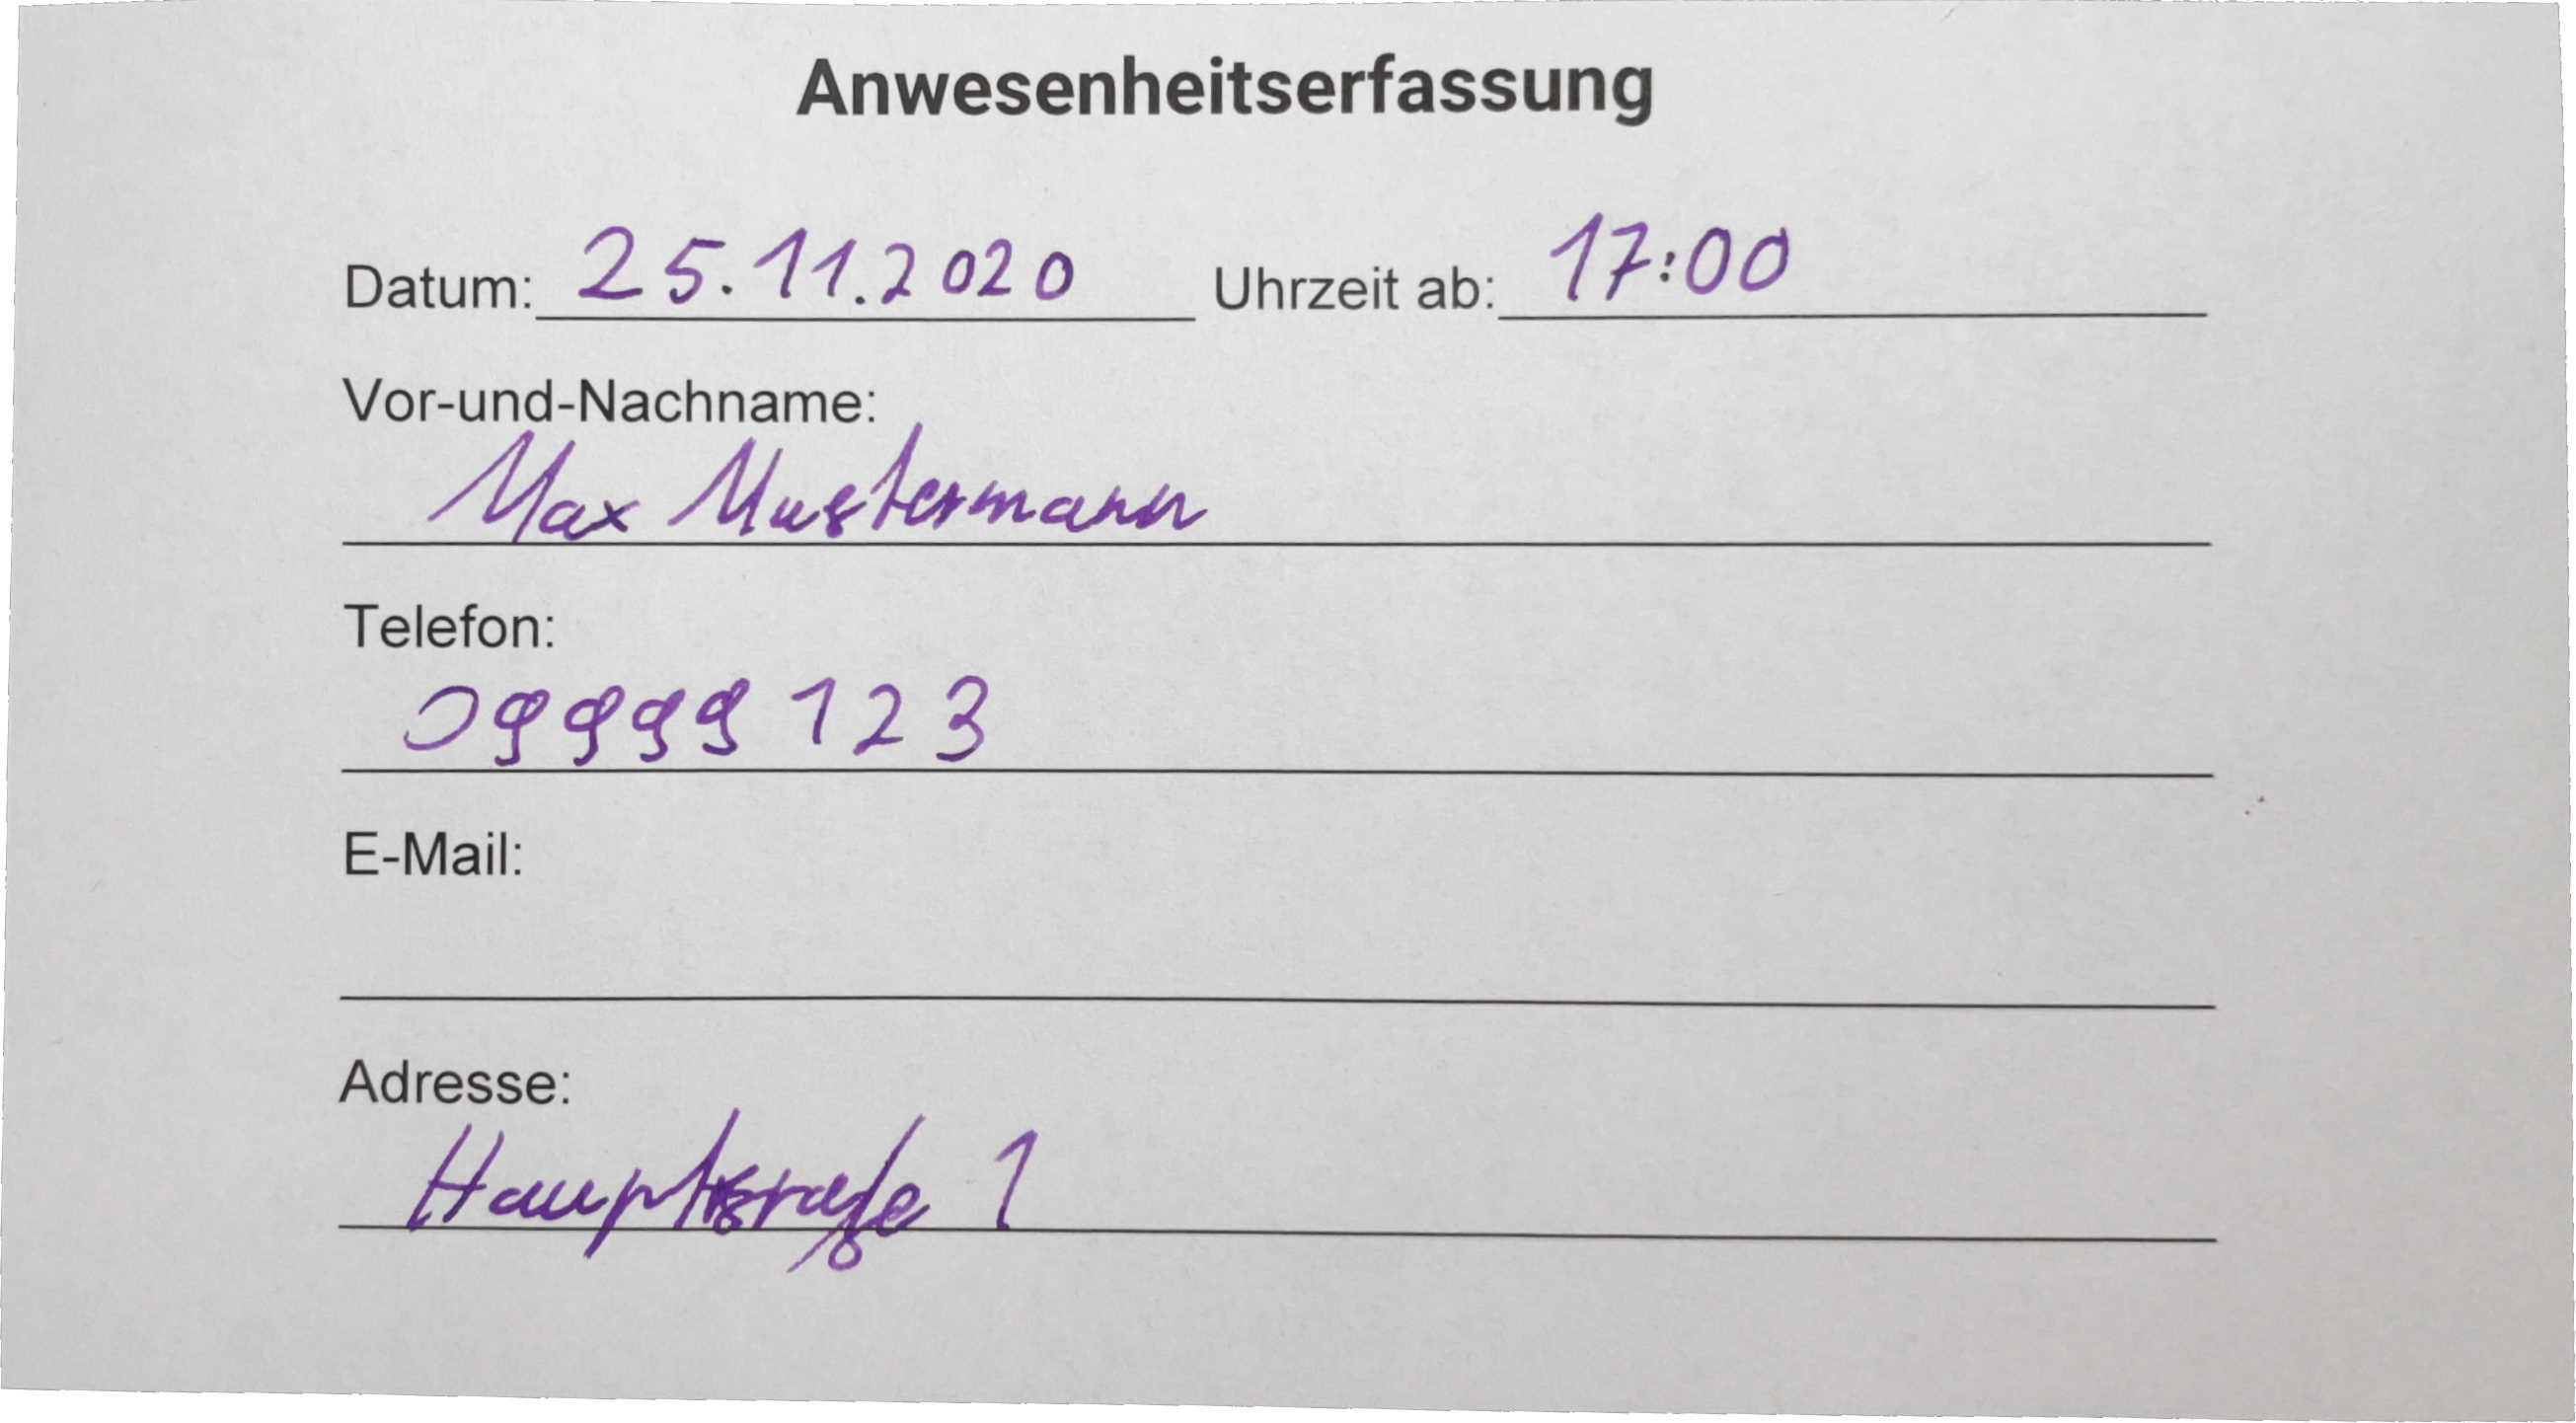 Anwesenheitserfassung
Datum: 25.11.2020 Uhrzeit ab: 17:00
Vor-und-Nachname:
Max Mustermann
Telefon:
09999 123
E-Mail:
Adresse:
Hauptsraße 1